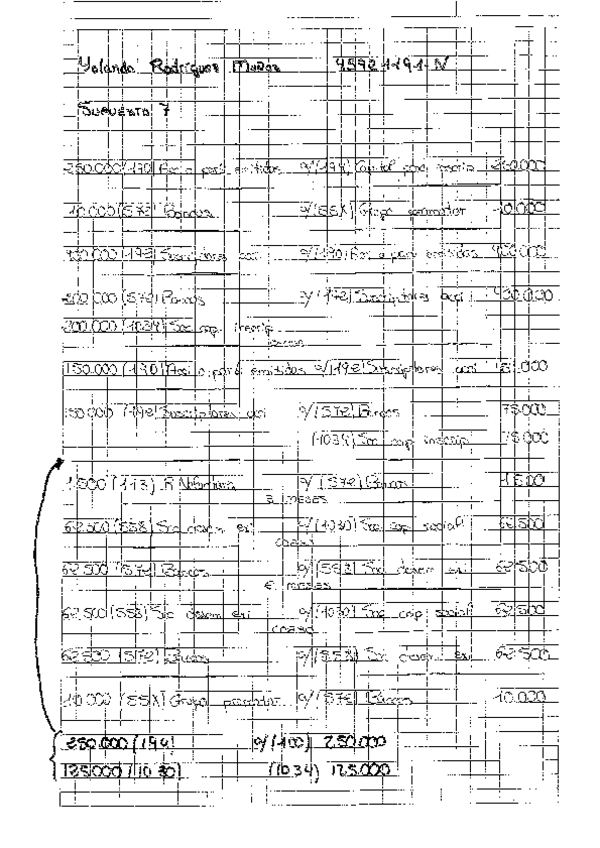 Yolanda Rodríguez Muñoz 45921191-N
Supuesto 7
250.000 (190) Acc o part emitidas a/(194) Capital pend inscrip 250.000
10.000 (572) Bancos a/(55X) Grupo promotor 10.000
400.000 (192) Suscriptores acci a/(190) Acc o part emitidas 400.000
200.000 (572) Bancos a/(192) Suscriptores acci 400.000
200.000 (1034) Soc cap inscrip
150.000 (190) Acci o part emitidas a/(192) Suscriptores acci
150.000 (192) Suscriptores acci a/(572) Bancos 75.000
(1034) Soc cap inscrip 75.000
(113) R Voluntaria a/(572) Bancos 1.500
3 meses
62.500 (558) Soc desem exi a/(1030) Soc cap social 62.500
62.500 (572) Bancos a/(558) Soc desem exi 62.500
meses
62.500 (558) Soc desem exi a/(1030) Soc cap social 62.500
62.500 (572) Bancos a/(558) Soc desem exi 62.500
10.000 (55X) Grupo promotor a/(572) Bancos 10.000
250.000 (194) a/(100) 250.000
125.000 (1030) (1034) 125.000